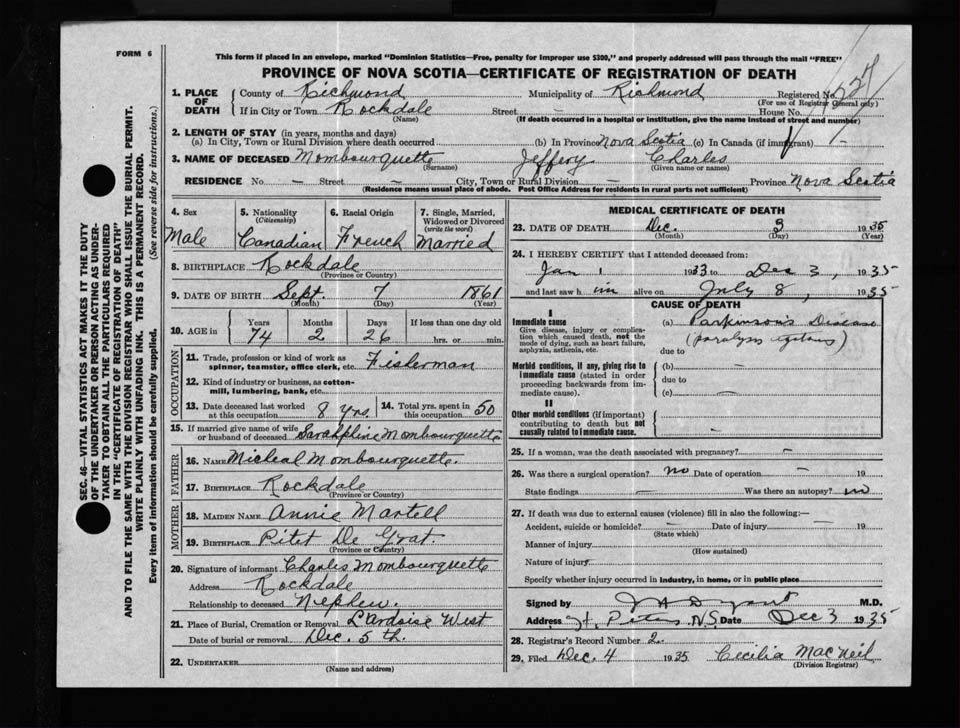 FORM 6
This form if placed in an envelope, marked "Dominion Statistics—Free, penalty for improper use $300," and properly addressed will pass through the mail "FREE"
PROVINCE OF NOVA SCOTIA—CERTIFICATE OF REGISTRATION OF DEATH
SEC. 46—VITAL STATISTICS ACT MAKES IT THE DUTY
OF THE UNDERTAKER OR PERSON ACTING AS UNDER-
TAKER TO OBTAIN ALL THE PARTICULARS REQUIRED
IN THE "CERTIFICATE OF REGISTRATION OF DEATH"
AND TO FILE THE SAME WITH THE DIVISION REGISTRAR WHO SHALL ISSUE THE BURIAL PERMIT.
WRITE PLAINLY WITH UNFADING INK. THIS IS A PERMANENT RECORD.
Every item of information should be carefully supplied. (See reverse side for instructions.)
1. PLACE OF DEATH County of Richmond Municipality of Richmond Registered No.
(For use of Registrar General only)
If in City or Town Rockdale Street – House No.
(Name) (If death occurred in a hospital or institution, give the name instead of street and number)
2. LENGTH OF STAY (in years, months and days)
(a) In City, Town or Rural Division where death occurred (b) In Province Nova Scotia (c) In Canada (if immigrant) –
3. NAME OF DECEASED Mombourquette Jeffery Charles
(Surname) (Given name or names)
RESIDENCE No. – Street – City, Town or Rural Division – Province Nova Scotia
(Residence means usual place of abode. Post Office Address for residents in rural parts not sufficient)
4. Sex 5. Nationality 6. Racial Origin 7. Single, Married,
(Citizenship) Widowed or Divorced
(write the word)
Male Canadian French Married
8. BIRTHPLACE Rockdale
(Province or Country)
9. DATE OF BIRTH Sept. 7 1861
(Month) (Day) (Year)
10. AGE in Years Months Days If less than one day old
74 2 26 hrs. or min.
OCCUPATION
11. Trade, profession or kind of work as Fisherman
spinner, teamster, office clerk, etc.
12. Kind of industry or business, as cotton-
mill, lumbering, bank, etc.
13. Date deceased last worked at this occupation 8 yrs. 14. Total yrs. spent in this occupation 50
15. If married give name of wife
or husband of deceased Mombourquette
FATHER
16. NAME Micheal Mombourquette.
17. BIRTHPLACE Rockdale
(Province or Country)
MOTHER
18. MAIDEN NAME Annie Martell
19. BIRTHPLACE Pitet De Grat.
(Province or Country)
20. Signature of informant Charles Mombourquette
Address Rockdale
Relationship to deceased Nephew.
21. Place of Burial, Cremation or Removal L'Ardoise West
Date of burial or removal Dec. 5th.
22. UNDERTAKER
(Name and address)
MEDICAL CERTIFICATE OF DEATH
23. DATE OF DEATH Dec. 3 1935
(Month) (Day) (Year)
24. I HEREBY CERTIFY that I attended deceased from:
Jan 1 1933 to Dec 3, 1935
and last saw him alive on July 8, 1935
CAUSE OF DEATH
I
Immediate cause (a) Parkinson's Disease
Give disease, injury or complica-
tion which caused death, not the (paralysis agitans)
mode of dying, such as heart failure,
asphyxia, asthenia, etc. due to
Morbid conditions, if any, giving rise to (b) –
Immediate cause (stated in order due to
proceeding backwards from im-
mediate cause). (c) –
II
Other morbid conditions (if important)
contributing to death but not
causally related to immediate cause. –
25. If a woman, was the death associated with pregnancy? –
26. Was there a surgical operation? no Date of operation – 19
State findings – Was there an autopsy? no
27. If death was due to external causes (violence) fill in also the following:—
Accident, suicide or homicide? – Date of injury – 19
(State which)
Manner of injury
(How sustained)
Nature of injury
Specify whether injury occurred in industry, in home, or in public place
Signed by M.D.
Address St. Peters N.S. Date Dec 3 1935
28. Registrar's Record Number 2
29. Filed Dec. 4 1935 Cecilia MacNeil
(Division Registrar)